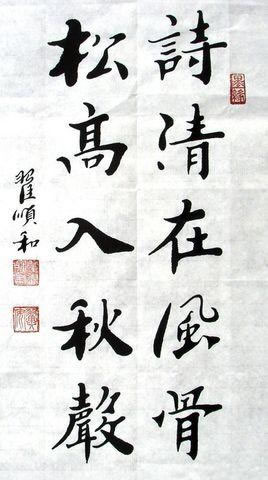 詩清在風骨
松高入秋聲
翟順和